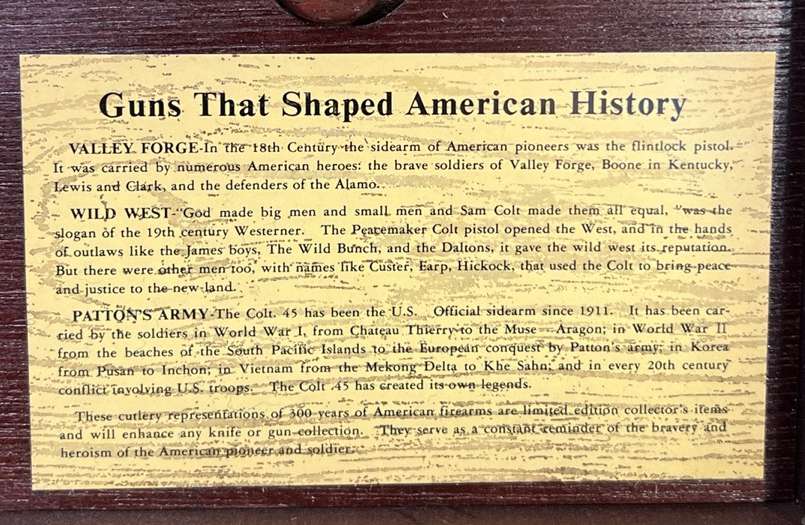 Guns That Shaped American History
VALLEY FORGE-In the 18th Century the sidearm of American pioneers was the flintlock pistol.
It was carried by numerous American heroes: the brave soldiers of Valley Forge, Boone in Kentucky,
Lewis and Clark, and the defenders of the Alamo.
WILD WEST-"God made big men and small men and Sam Colt made them all equal, "was the
slogan of the 19th century Westerner. The Peacemaker Colt pistol opened the West, and in the hands
of outlaws like the James boys, The Wild Bunch, and the Daltons, it gave the wild west its reputation.
But there were other men too, with names like Custer, Earp, Hickock, that used the Colt to bring peace
and justice to the new land.
PATTON'S ARMY-The Colt. 45 has been the U.S. Official sidearm since 1911. It has been car-
ried by the soldiers in World War I, from Chateau Thierry to the Muse - Aragon; in World War II
from the beaches of the South Pacific Islands to the European conquest by Patton's army; in Korea
from Pusan to Inchon; in Vietnam from the Mekong Delta to Khe Sahn; and in every 20th century
conflict involving U.S. troops. The Colt .45 has created its own legends.
These cutlery representations of 300 years of American firearms are limited edition collector's items
and will enhance any knife or gun collection. They serve as a constant reminder of the bravery and
heroism of the American pioneer and soldier.